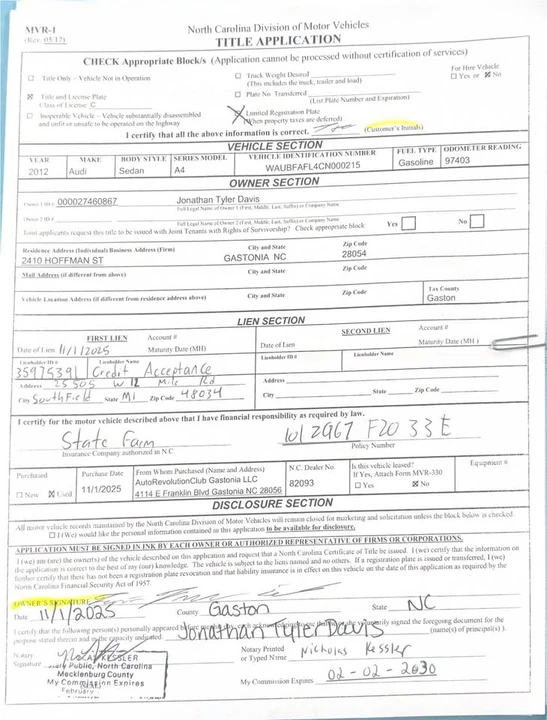 MVR-1
(Rev. 05/17)
North Carolina Division of Motor Vehicles
TITLE APPLICATION
CHECK Appropriate Block/s (Application cannot be processed without certification of services)
Title Only – Vehicle Not in Operation
Truck Weight Desired
(This includes the truck, trailer and load)
For Hire Vehicle
Yes or No
Title and License Plate
Class of License C
Plate No. Transferred
(List Plate Number and Expiration)
Inoperable Vehicle – Vehicle substantially disassembled
and unfit or unsafe to be operated on the highway
Limited Registration Plate
(When property taxes are deferred)
I certify that all the above information is correct.
(Customer's Initials)
VEHICLE SECTION
YEAR MAKE BODY STYLE SERIES MODEL VEHICLE IDENTIFICATION NUMBER FUEL TYPE ODOMETER READING
2012 Audi Sedan A4 WAUBFAFL4CN000215 Gasoline 97403
OWNER SECTION
Owner 1 ID # 000027460867 Jonathan Tyler Davis
Full Legal Name of Owner 1 (First, Middle, Last, Suffix) or Company Name
Owner 2 ID #
Full Legal Name of Owner 2 (First, Middle, Last, Suffix) or Company Name
Joint applicants request this title to be issued with Joint Tenants with Rights of Survivorship? Check appropriate block: Yes No
Residence Address (Individual) Business Address (Firm) City and State Zip Code
2410 HOFFMAN ST GASTONIA NC 28054
Mail Address (if different from above) City and State Zip Code
Vehicle Location Address (if different from residence address above) City and State Zip Code
Tax County
Gaston
LIEN SECTION
FIRST LIEN Account #
Date of Lien 11/1/2025 Maturity Date (MH)
Lienholder ID # Lienholder Name
35975391 Credit Acceptance
Address 25505 W 12 Mile Rd
City Southfield State MI Zip Code 48034
SECOND LIEN Account #
Date of Lien Maturity Date (MH)
Lienholder ID # Lienholder Name
Address
City State Zip Code
I certify for the motor vehicle described above that I have financial responsibility as required by law.
State Farm
Insurance Company authorized in N.C.
W12967 F20 33E
Policy Number
Purchased
New Used
Purchase Date
11/1/2025
From Whom Purchased (Name and Address)
AutoRevolutionClub Gastonia LLC
4114 E Franklin Blvd Gastonia NC 28056
N.C. Dealer No.
82093
Is this vehicle leased?
If Yes, Attach Form MVR-330
Yes No
Equipment #
DISCLOSURE SECTION
All motor vehicle records maintained by the North Carolina Division of Motor Vehicles will remain closed for marketing and solicitation unless the block below is checked.
I (We) would like the personal information contained in this application to be available for disclosure.
APPLICATION MUST BE SIGNED IN INK BY EACH OWNER OR AUTHORIZED REPRESENTATIVE OF FIRMS OR CORPORATIONS.
I (we) am (are) the owner(s) of the vehicle described on this application and request that a North Carolina Certificate of Title be issued. I (we) certify that the information on
the application is correct to the best of my (our) knowledge. The vehicle is subject to the liens named and no others. If a registration plate is issued or transferred, I (we)
further certify that there has not been a registration plate revocation and that liability insurance is in effect on this vehicle on the date of this application as required by the
North Carolina Financial Security Act of 1957.
OWNER'S SIGNATURE
Date 11/1/2025 County Gaston State NC
I certify that the following person(s) personally appeared before me this day, each acknowledging to me that he or she voluntarily signed the foregoing document for the
purpose stated therein and in the capacity indicated: Jonathan Tyler Davis (name(s) of principal(s)).
Notary
Signature
KESSLER
Public, North Carolina
Mecklenburg County
My Commission Expires
February
Notary Printed
or Typed Name Nicholas Kessler
My Commission Expires 02-02-2030